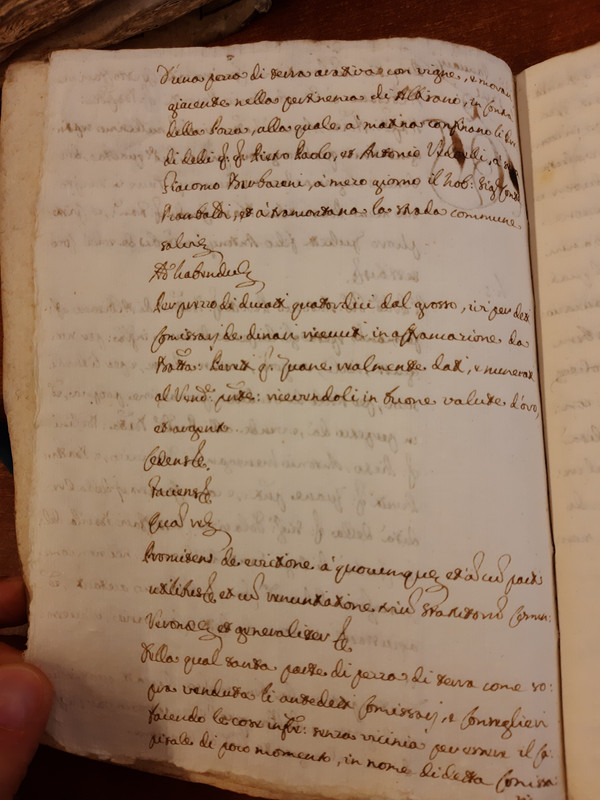 D'una pezza di terra arativa con vigne, e morari
giacente nella pertinenza di Albisano, in contra
della Pozza, alla quale à matina confinano li beni
di delli q. q. Pietro Paolo, et Antonio Vedovelli, à
Giacomo Barbareni, à mezo giorno il Nob: Sig:
et à tramontana la strada commune
salvis
Ad habendum
Per prezzo di ducati quatordici dal grosso, ivi per detti
Comissarij de dinari ricevuti in affrancazione da
Batta: q. Zuane realmente dati, e numerati
al Vend: pnte: ricevendoli in buone valute d'oro,
et argento
Cedens
Faciens
Quam
Promittens de evictione à quocumque et in
utilibus et cum renuntiatione Statutorum Commu:
Verone et generaliter
Della qual tanta parte di pezza di terra come so:
pra venduta li antedetti Comissarij, e Conseglieri
facendo le cose infte: senza vicinia per essere il ca:
pitale di poco momento, in nome di detta Comissa